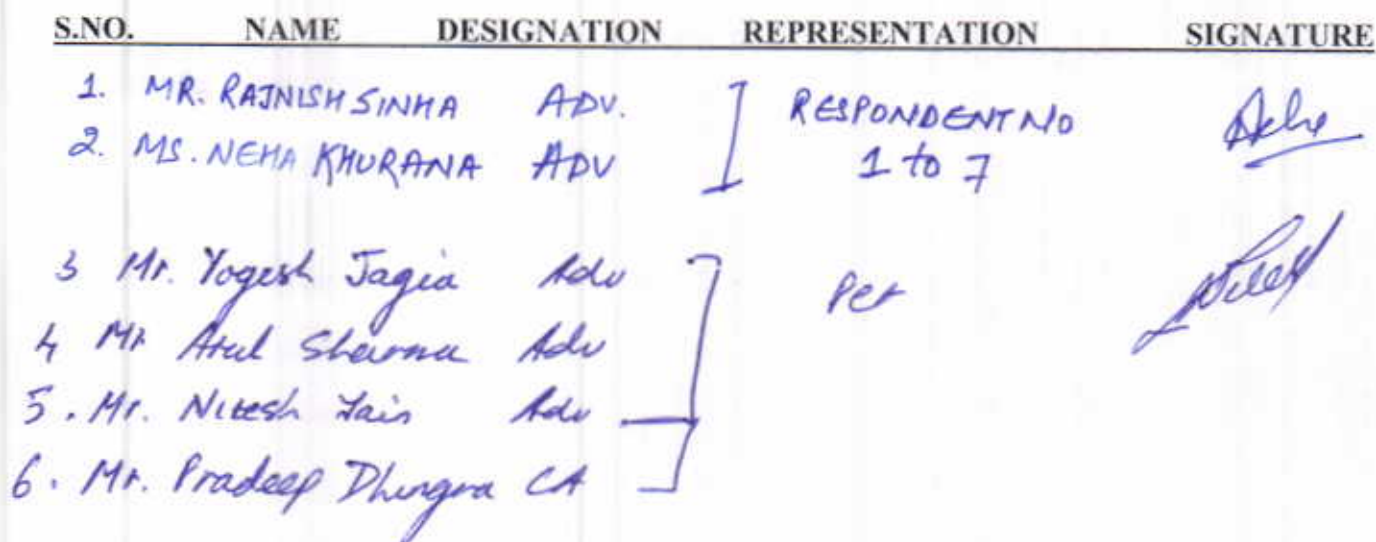 S.NO. NAME DESIGNATION REPRESENTATION SIGNATURE
1. MR. RAJNISH SINHA ADV. RESPONDENT NO
2. MS. NEHA KHURANA ADV 1 to 7
3 Mr. Yogesh Jagia Adv Pet
4 Mr Atul Sharma Adv
5. Mr. Nitesh Jain Adv
6. Mr. Pradeep Dhingra CA